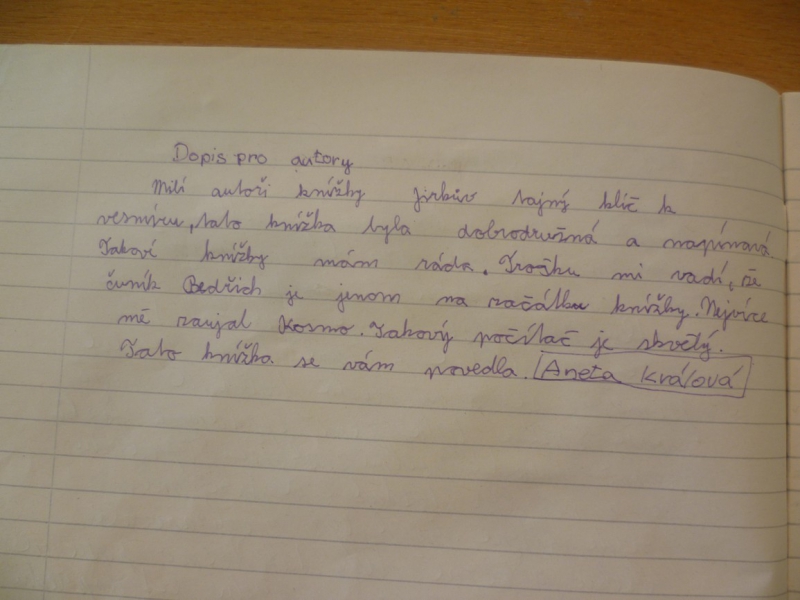 Dopis pro autory
Milí autoři knížky Jirkův tajný klíč k
vesmíru, tato knížka byla dobrodružná a napínavá.
Takové knížky mám ráda. Trošku mi vadí, že
čuník Bedřich je jenom na začátku knížky. Nejvíce
mě zaujal Kosmo. Takový počítač je skvělý.
Tato knížka se vám povedla. Aneta Králová